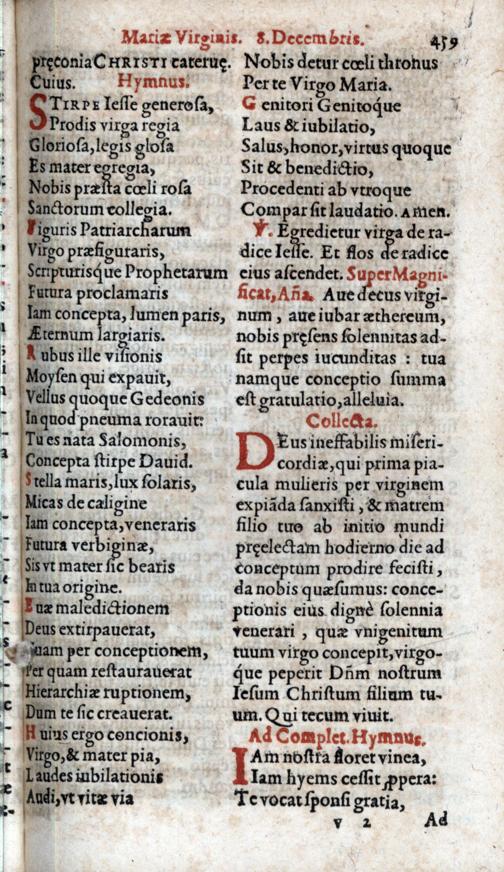 Mariæ Virginis. 8. Decembris. 459
pręconia CHRISTI cateruę.
Cuius. Hymnus.
STIRPE Iesse generosa,
Prodis virga regia
Gloriosa, legis glosa
Es mater egregia,
Nobis præsta cœli rosa
Sanctorum collegia.
Figuris Patriarcharum
Virgo præfiguraris,
Scripturisque Prophetarum
Futura proclamaris
Iam concepta, lumen paris,
Æternum largiaris.
Rubus ille visionis
Moysen qui expauit,
Vellus quoque Gedeonis
In quod pneuma rorauit:
Tu es nata Salomonis,
Concepta stirpe Dauid.
Stella maris, lux solaris,
Micas de caligine
Iam concepta, veneraris
Futura verbiginæ,
Sis vt mater sic bearis
In tua origine.
Euæ maledictionem
Deus extirpauerat,
Quam per conceptionem,
Per quam restaurauerat
Hierarchiæ ruptionem,
Dum te sic creauerat.
Huius ergo concionis,
Virgo, & mater pia,
Laudes iubilationis
Audi, vt vitæ via
Nobis detur cœli thronus
Per te Virgo Maria.
Genitori Genitoque
Laus & iubilatio,
Salus, honor, virtus quoque
Sit & benedictio,
Procedenti ab vtroque
Compar sit laudatio. Amen.
℣. Egredietur virga de ra-
dice Iesse. Et flos de radice
eius ascendet. Super Magni-
ficat, Aña. Aue decus virgi-
num, aue iubar æthereum,
nobis pręsens solennitas ad-
sit perpes iucunditas : tua
namque conceptio summa
est gratulatio, alleluia.
Collecta.
DEus ineffabilis miseri-
cordiæ, qui prima pia-
cula mulieris per virginem
expiāda sanxisti, & matrem
filio tuo ab initio mundi
pręelectam hodierno die ad
conceptum prodire fecisti,
da nobis quæsumus: conce-
ptionis eius dignè solennia
venerari, quæ vnigenitum
tuum virgo concepit, virgo-
que peperit Dñm nostrum
Iesum Christum filium tu-
um. Qui tecum viuit.
Ad Complet. Hymnus.
IAm nostra floret vinea,
Iam hyems cessit ꝓpera:
Te vocat sponsi gratia,
v 2 Ad